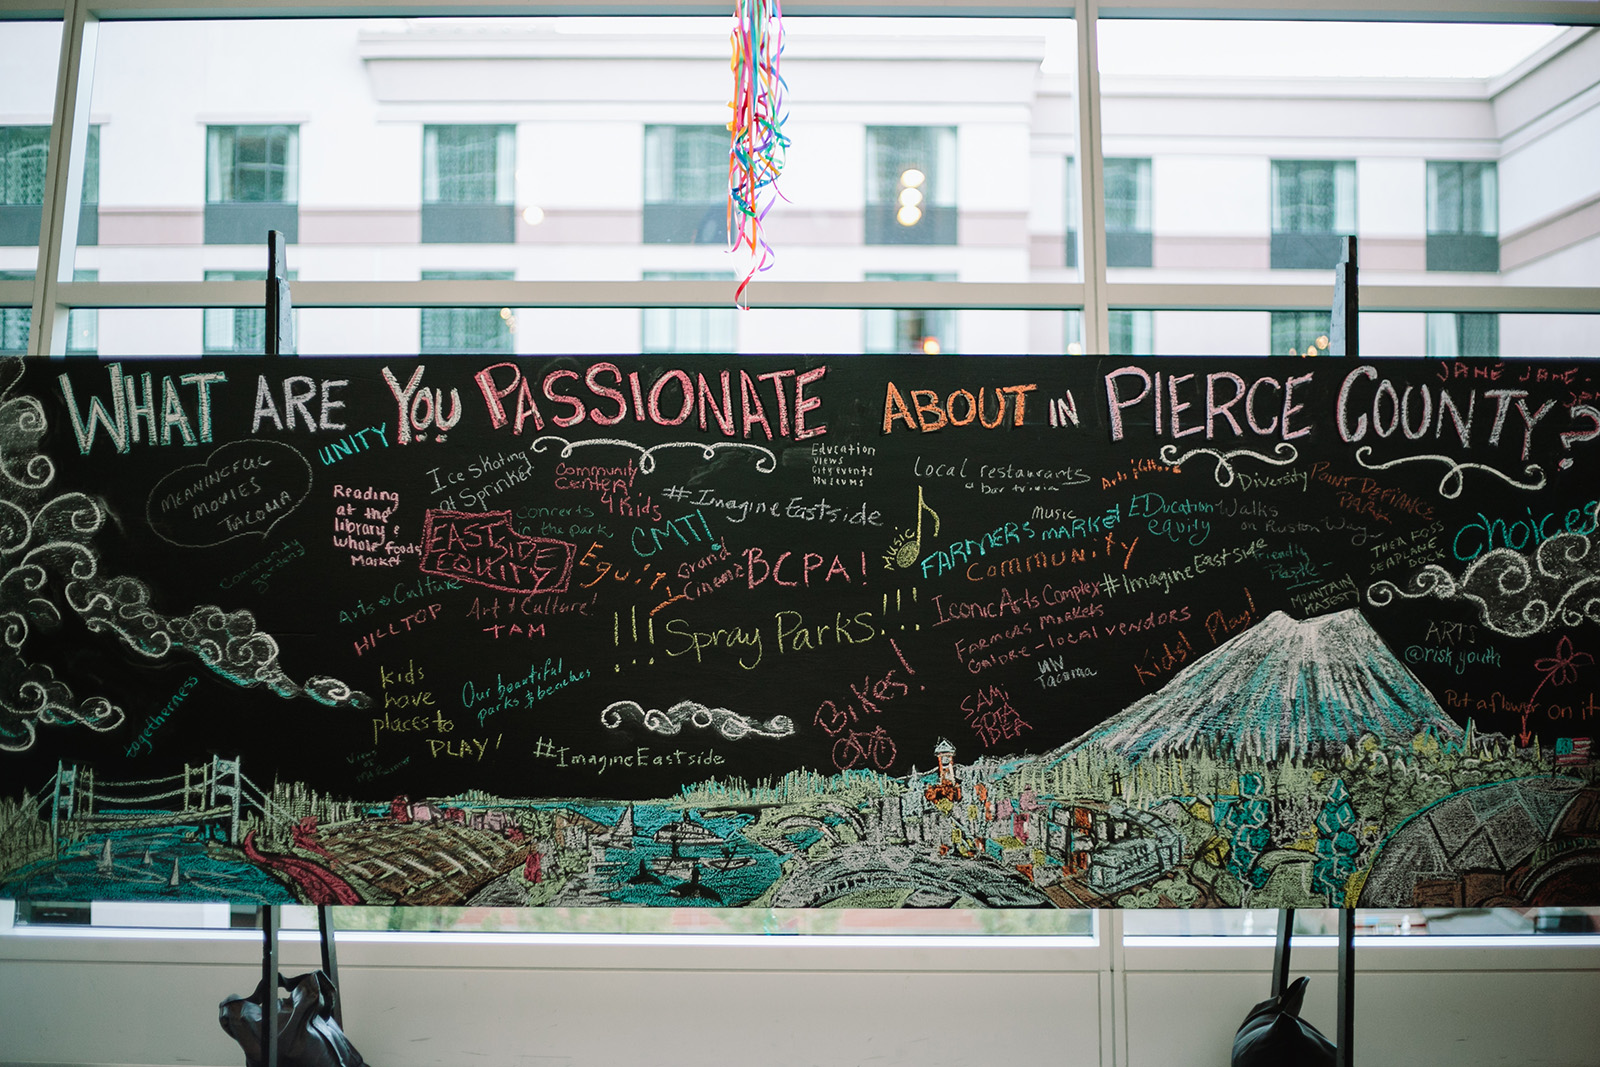 WHAT ARE YOU PASSIONATE ABOUT IN PIERCE COUNTY?
JANE JANE
MEANINGFUL
MOVIES
TACOMA
UNITY
Ice Skating
at Sprinker
Community
Center!
4 Kids
Education
Views
City events
Museums
Local restaurants
& bar trivia
Arts & Culture
Diversity
POINT DEFIANCE
PARK
Reading
at the
library &
whole foods
Market
EAST
SIDE
EQUITY
Concerts
in the park
#ImagineEastside
CMT!
Grand
Cinema
BCPA!
MUSIC
MUSIC
FARMERS MARKET
COMMUNITY
EDucation
equity
Walks
on Ruston Way
choices
THEA FOSS
SEAPLANE
DOCK
Community
gardens
Arts & Culture
HILLTOP
Art & Culture!
TAM
Equity
!!! Spray Parks!!!
Iconic Arts Complex
Farmers Markets
Galore - local vendors
#ImagineEastside
Friendly
People
MOUNTAIN
MAJESTY
ARTS
@risk youth
kids
have
places to
PLAY!
Our beautiful
parks & beaches
UW
Tacoma
Kids! Play!
togetherness
Bikes!
SAMi
SOTA
IDEA
Put a flower on it
#ImagineEastside